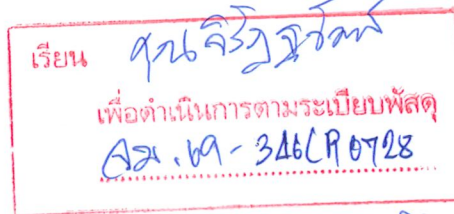 เรียน คุณจิรัฏฐ์
เพื่อดำเนินการตามระเบียบพัสดุ
อว.69-346CR0728